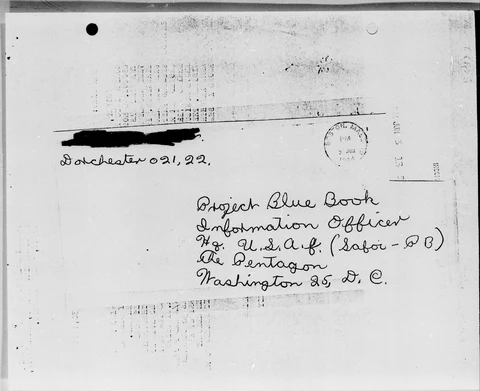 Dorchester 021, 22.
BOSTON, MASS.
PM
Project Blue Book
Information Officer
Hq. U.S.A.F. (Safoi-PB)
The Pentagon
Washington 25, D. C.